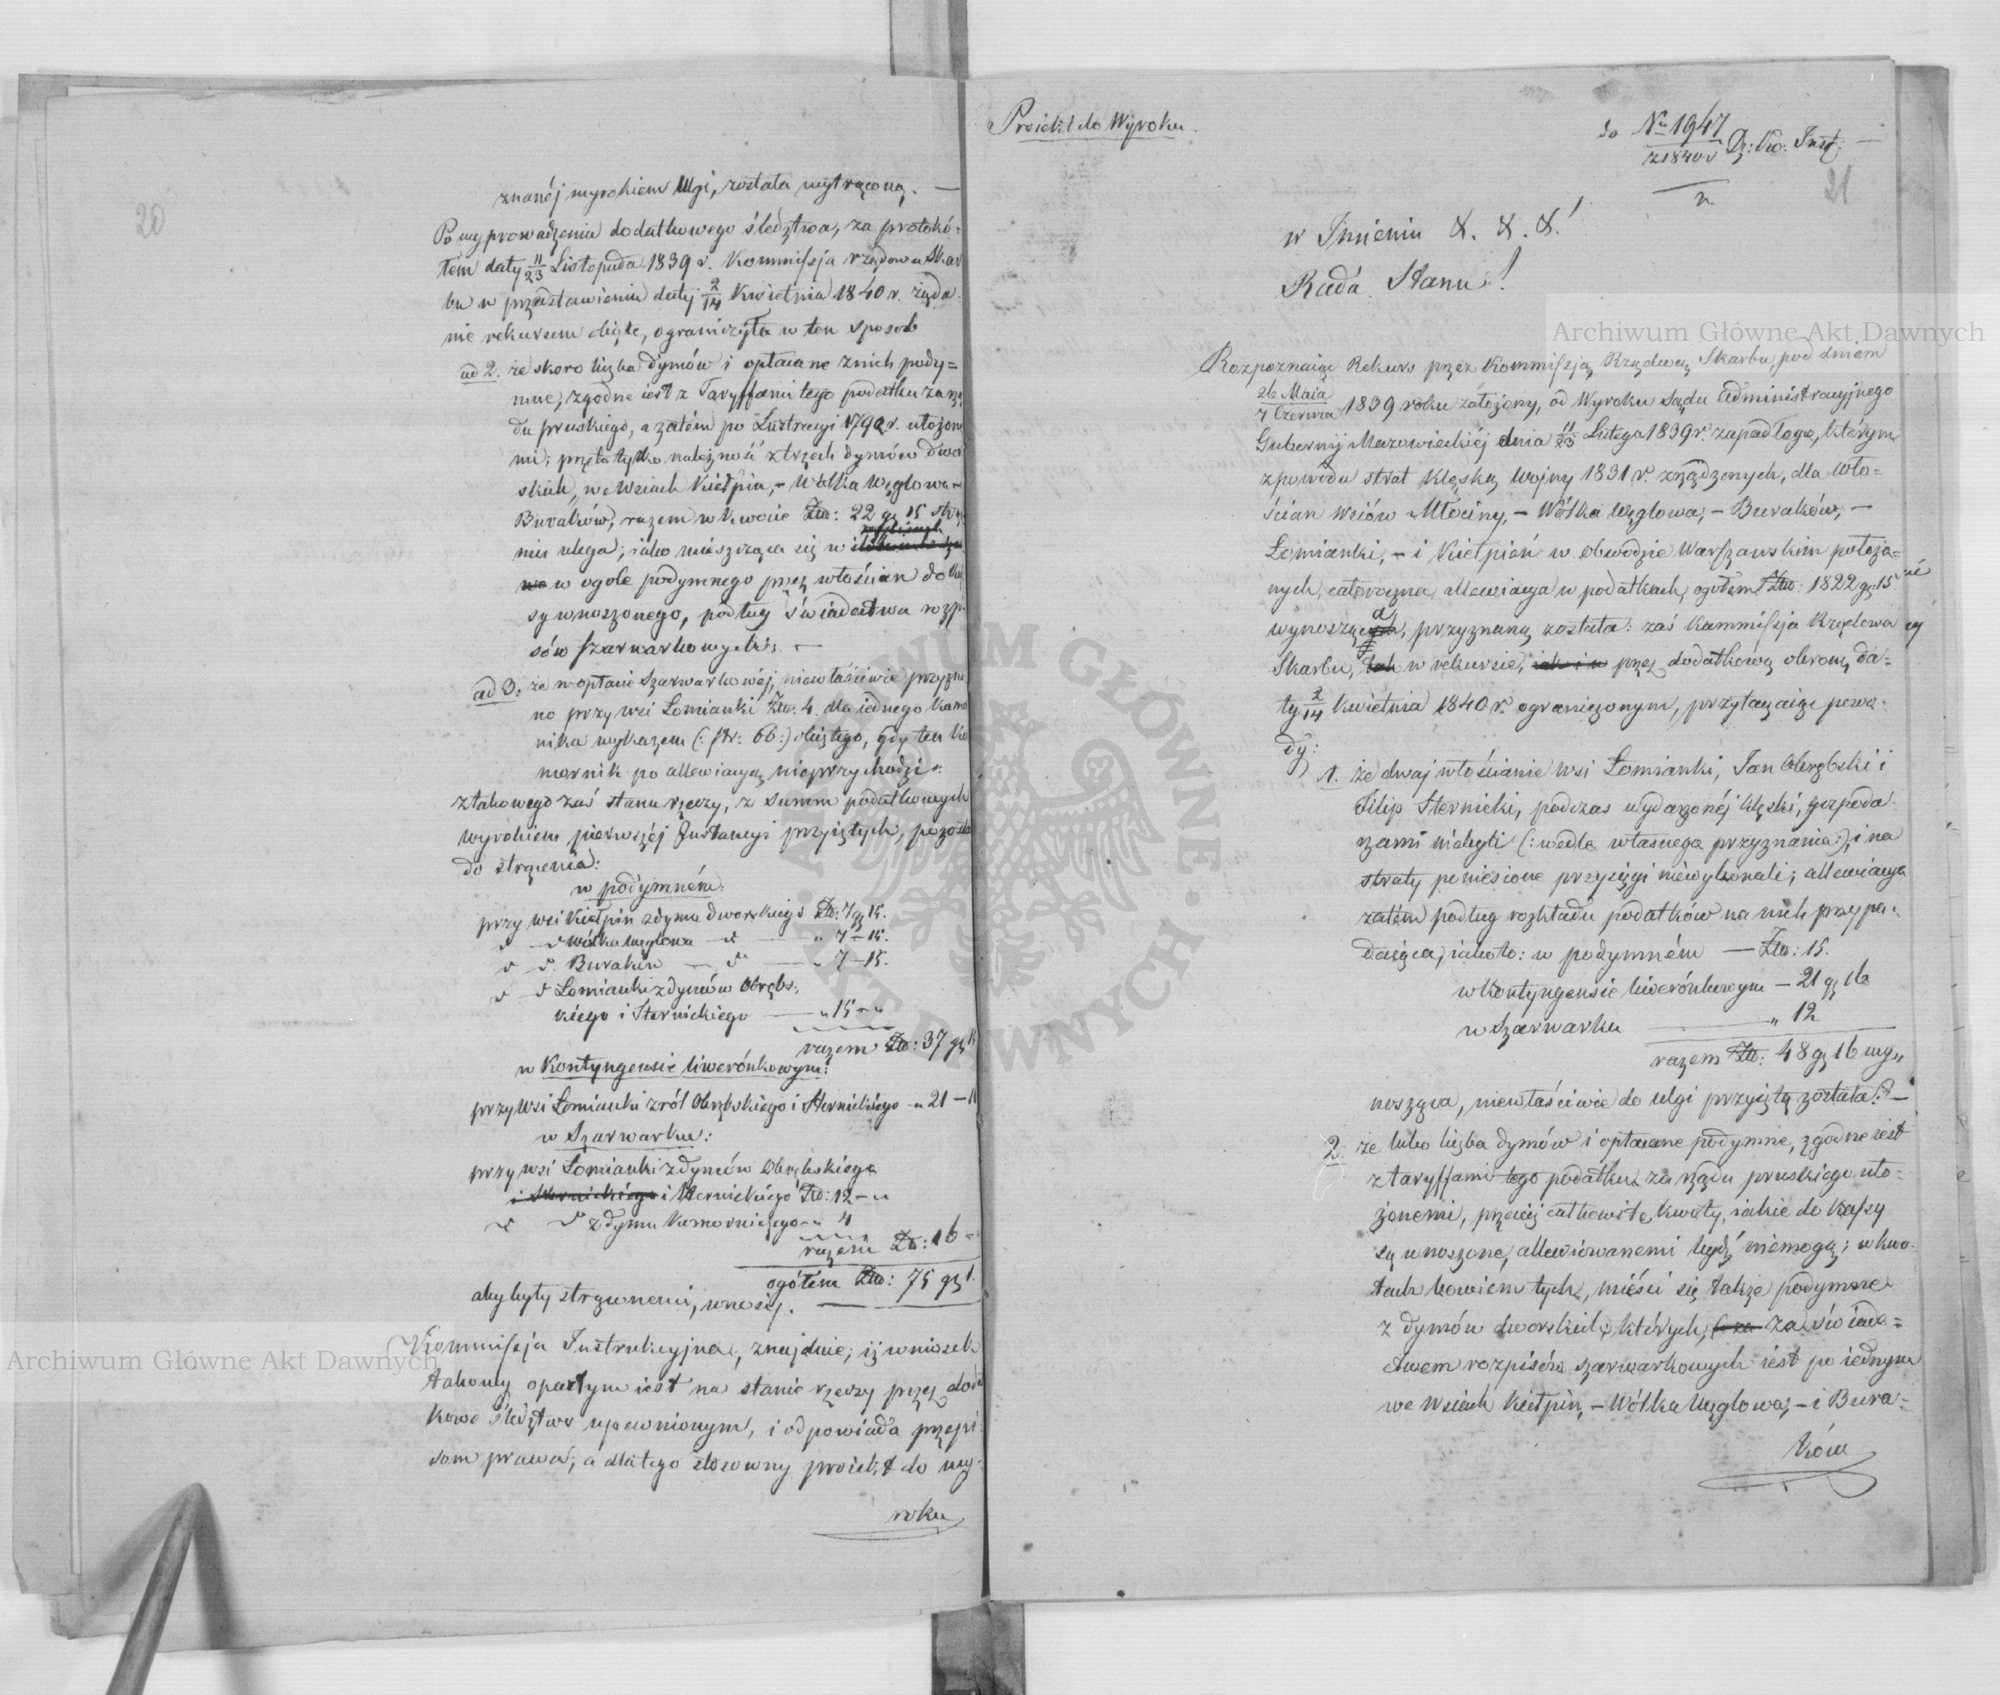 20
znanéj wyrokiem Ulgi, została wytrąconą. —
Po wyprowadzeniu dodatkowego śledztwa, za protokó-
łem daty 11/23 Listopada 1839 r. Kommissja rządowa Skar
bu w przedstawieniu daty 2/14 Kwietnia 1840 r. żąda
nie rekursem objęte, ograniczyła w ten sposób
ad 2. że skoro liczba dymów i opłacane z nich pody=
mne, zgodne iest z Taryffami tego podatku za rzą
du pruskiego, a zatém po Lustracyi 1790 r. ułożone
mi; przeto tylko należność z trzech dymów dwor
skich, we wsiach Kiełpin, – Wólka Węglowa –
Buraków, razem w kwocie Złp: 22 gr 15 strąc
niu ulega; iako mieszcząca się w
w ogóle podymnego przez włościan do Kas
sy wnoszonego, podług świadectwa rozpi
sów szarwarkowych; —
ad 3. że w opłacie Szarwarkowéj, niewłaściwie przyzna
no przy wsi Łomianki Złp. 4. dla iednego Komor
nika wykazem (: str: 66 :) objętego, gdy ten Ko
mornik po allewiacyą nieprzychodzi.
z takowego zaś stanu rzeczy, z summ podatkowych
wyrokiem pierwszéj Instancyi przyiętych, pozosta
do strącenia:
w podymném:
przy wsi Kiełpin z dymu dworskiego Złp: 7 gr 15.
d — d Wólka Węglowa — d — „ 7 – 15.
d — d. Buraków — d — „ 7 – 15.
d — d Łomianki z dymów Obrębs.
kiego i Sternickiego — „ 15 – „
razem Złp: 37 gr 15
w Kontyngensie liwerónkowym:
przy wsi Łomianki z ról Obrębskiego i Sternickiego – „ 21 – 16
w Szarwarku:
przy wsi Łomianki z dymów Obrębskiego
i Sternickiego i Sternickiego Złp: 12 – „
d d z dymu Komorniczego – „ 4
razem Złp: 16 –
ogółem Złp: 75 gr 1.
aby były strąconemi, wnosi. —
Kommissja Instrukcyjna, znajduie, iż wniosek
takowy opartym iest na stanie rzeczy przez dodat
kowe śledztwo upewnionym, i odpowiada przepi
som prawa, a dlatego stosowny proiekt do wy-
roku
Proiekt do Wyroku.
do Nru 1947 / z 1840 r. Dz: Ko: Inst. —
21
w Imieniu &. &. &!
Rada Stanu!
Rozpoznaiąc Rekurs przez Kommissją Rządową Skarbu, pod dniem
26 Maia / 7 Czerwca 1839 roku założony, od Wyroku Sądu Administracyjnego
Gubernij Mazowieckiéj dnia 11/23 Lutego 1839 r. zapadłego, którym
z powodu strat klęską wojny 1831 r. zrządzonych, dla wło=
ścian Wsiów Młociny, – Wólka Węglowa, – Buraków, –
Łomianki, – i Kiełpin w obwodzie Warszawskim położo=
nych, całoroczna allewiacya w podatkach, ogółem Złp: 1822 gr 15
wynosząca, przyznaną została: zaś Kommissja Rządowa
Skarbu, w rekursie, przez dodatkową obronę da=
ty 2/14 Kwietnia 1840 r. ograniczonym, przytaczaiąc powo-
dy:
1. że dwaj włościanie wsi Łomianki, Jan Obrębski i
Filip Sternicki, podczas wydarzonéj klęski, gospoda-
rzami niebyli (: wedle własnego przyznania :), i na
straty poniesione przysięgi niewykonali; allewiacya
zatém podług rozkładu podatków na nich przypa-
daiąca, iakoto: w podymném — Złp: 15.
w Kontyngensie liwerónkowym – 21 gr 16
w Szarwarku — „ 12
razem Złp: 48 gr 16 wy„
nosząca, niewłaściwie do ulgi przyiętą została. –
2. że lubo liczba dymów i opłacane podymne, zgodne iest
z taryffami tego podatku za rządu pruskiego uło-
żonemi, przecięż całkowite kwoty, iakie do Kassy
są wnoszone, allewiowanemi bydź niemogą; w kwo-
tach bowiem tych, mieści się także podymne
z dymów dworskich, których, za świade=
ctwem rozpisów szarwarkowych iest po iednym
we wsiach Kiełpin, – Wólka Węglowa, – i Bura=
ków
Archiwum Główne Akt Dawnych
Archiwum Główne Akt Dawnych
ARCHIWUM GŁÓWNE AKT DAWNYCH